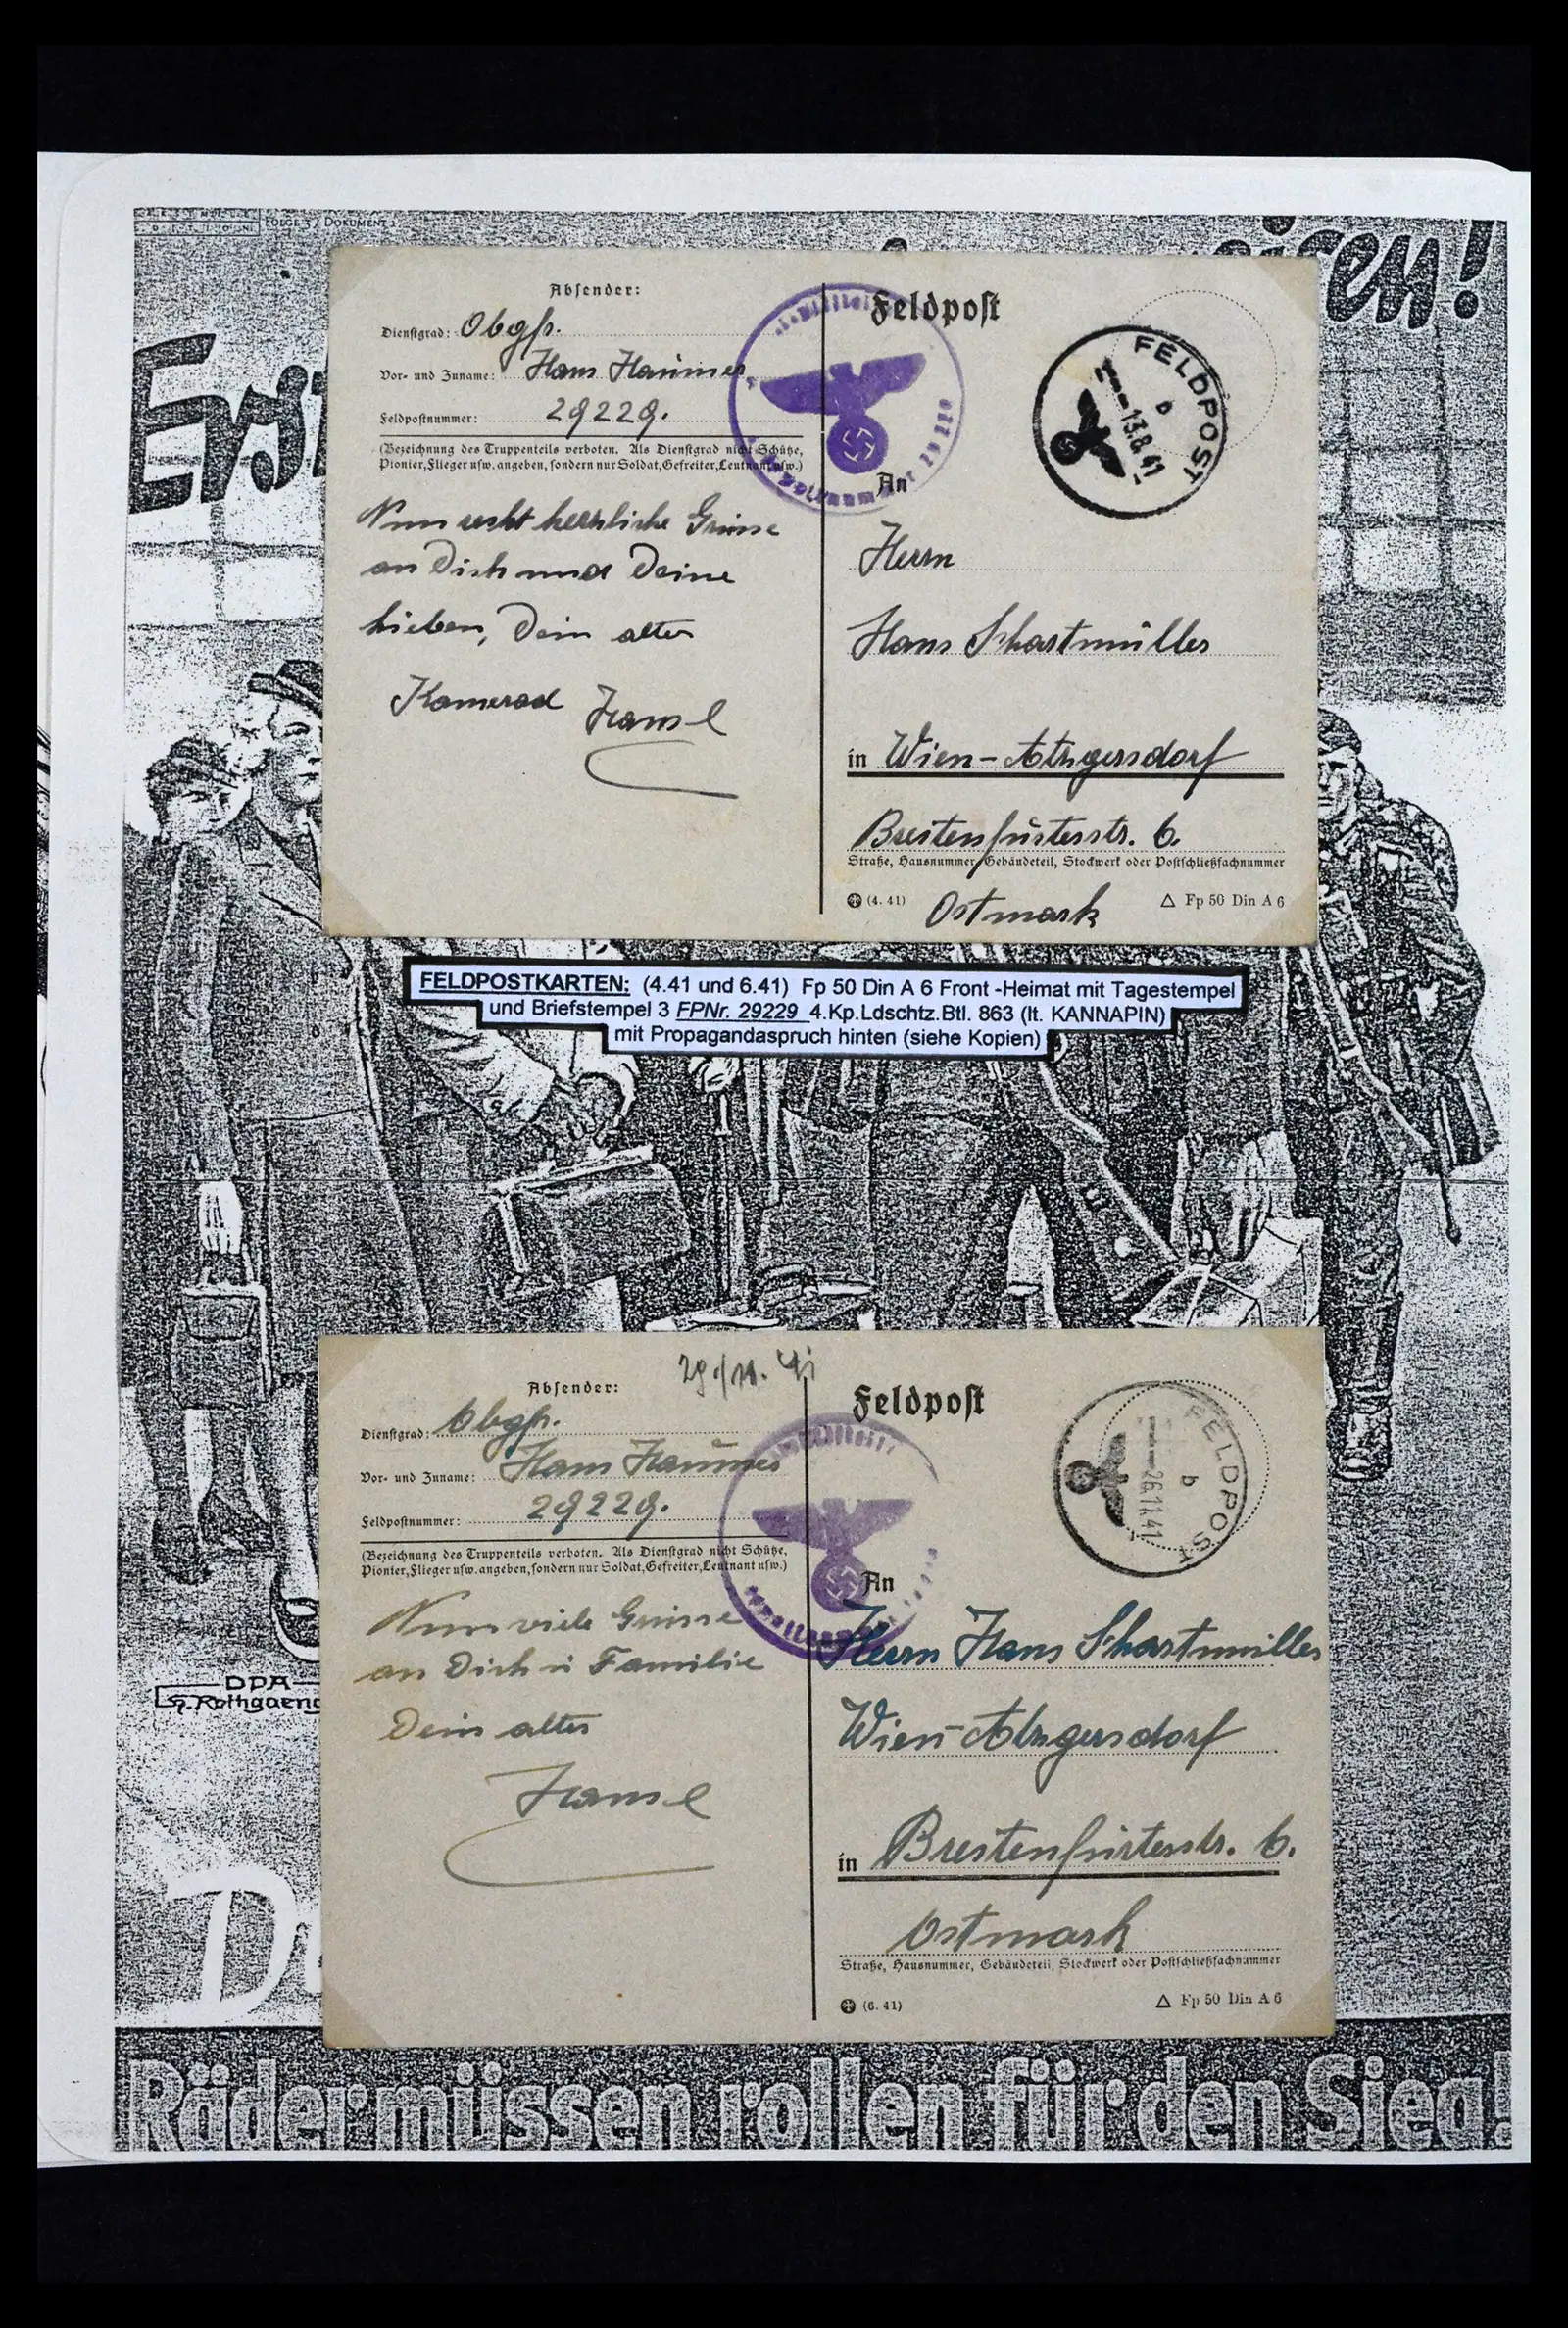 FOLGE 3 / DOKUMENT
eisen!
Erst
Absender:
Dienstgrad: Obgfr.
Vor- und Zuname: Hans
Feldpostnummer: 29229.
(Bezeichnung des Truppenteils verboten. Als Dienstgrad nicht Schütze,
Pionier, Flieger usw. angeben, sondern nur Soldat, Gefreiter, Leutnant usw.)
Nun recht herzliche Grüsse
an Dich und Deine
Lieben, Dein alter
Kamerad Hansl
Feldpost
FELDPOST
b
13.8.41
An
Herrn
Hans Schartmüller
in Wien-Atzgersdorf
Breitenfurterstr. 6.
Straße, Hausnummer, Gebäudeteil, Stockwerk oder Postschließfachnummer
Ostmark
(4. 41)
△ Fp 50 Din A 6
FELDPOSTKARTEN: (4.41 und 6.41) Fp 50 Din A 6 Front -Heimat mit Tagestempel
und Briefstempel 3 FPNr. 29229 4.Kp.Ldschtz.Btl. 863 (lt. KANNAPIN)
mit Propagandaspruch hinten (siehe Kopien)
Absender:
Dienstgrad: Obgfr.
Vor- und Zuname: Hans
Feldpostnummer: 29229.
(Bezeichnung des Truppenteils verboten. Als Dienstgrad nicht Schütze,
Pionier, Flieger usw. angeben, sondern nur Soldat, Gefreiter, Leutnant usw.)
Nun viele Grüsse
an Dich u Familie
Dein alter
Hansl
Feldpost
FELDPOST
b
26.11.41
An
Herrn Hans Schartmüller
Wien-Atzgersdorf
in Breitenfurterstr. 6.
Ostmark
Straße, Hausnummer, Gebäudeteil, Stockwerk oder Postschließfachnummer
(6. 41)
△ Fp 50 Din A 6
DPA
Räder müssen rollen für den Sieg!